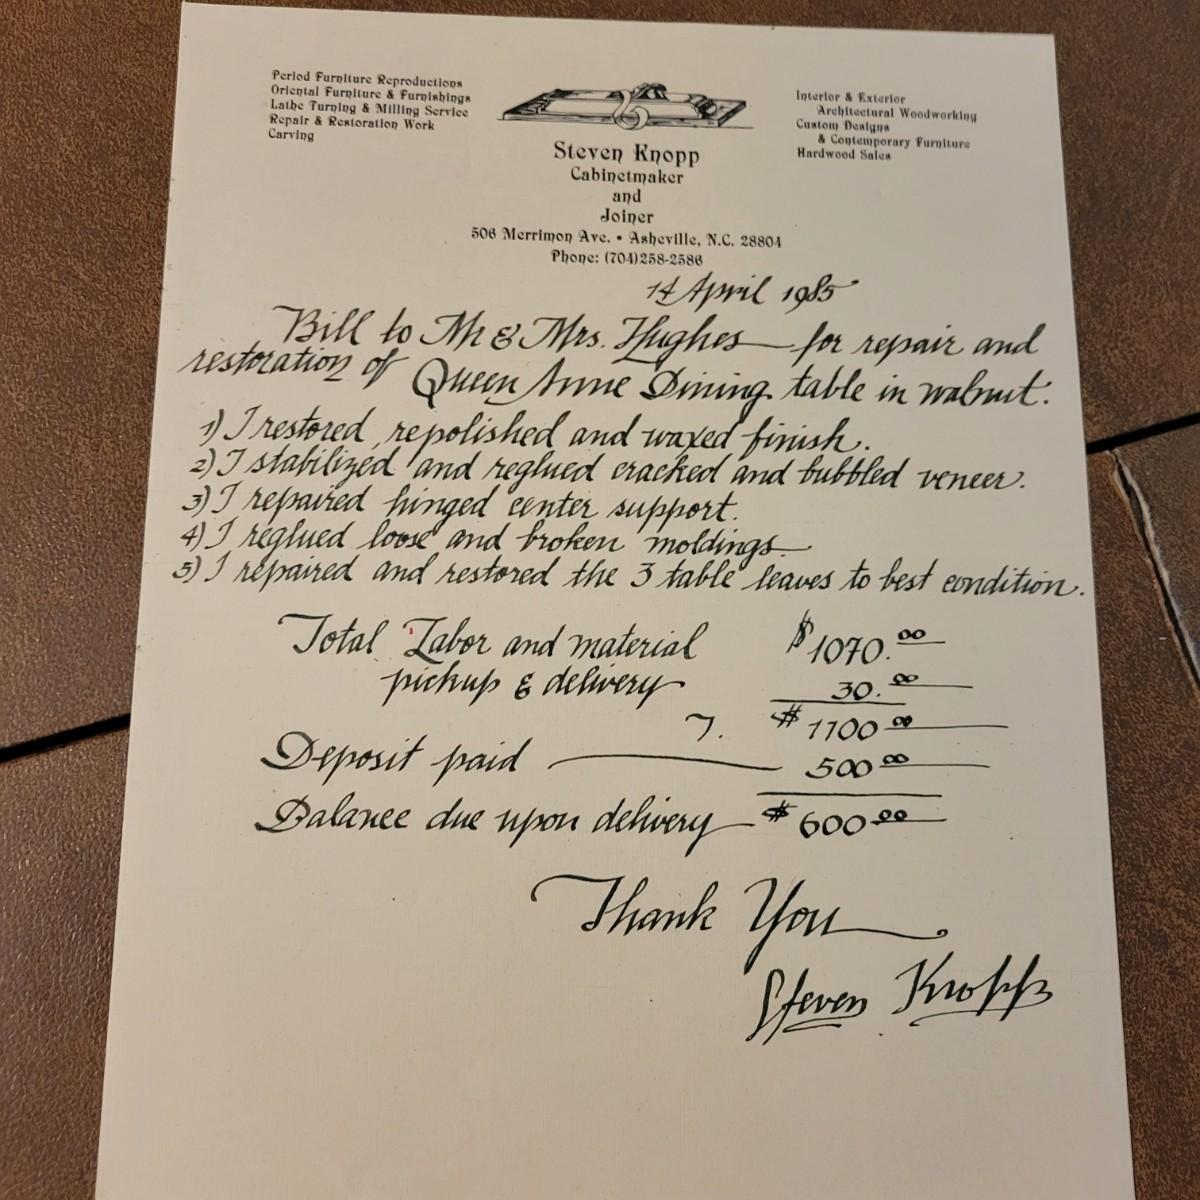 Period Furniture Reproductions
Oriental Furniture & Furnishings
Lathe Turning & Milling Service
Repair & Restoration Work
Carving
Interior & Exterior
Architectural Woodworking
Custom Designs
& Contemporary Furniture
Hardwood Sales
Steven Knopp
Cabinetmaker
and
Joiner
506 Merrimon Ave. • Asheville, N.C. 28804
Phone: (704)258-2586
14 April 1985
Bill to Mr & Mrs. Hughes — for repair and
restoration of Queen Anne Dining table in walnut.
1) I restored, repolished and waxed finish.
2) I stabilized and reglued cracked and bubbled veneer.
3) I repaired hinged center support.
4) I reglued loose and broken moldings.
5) I repaired and restored the 3 table leaves to best condition.
Total Labor and material $1070.00
pickup & delivery 30.00
T. $1100 00
Deposit paid — 500 00
Balance due upon delivery — $600 00
Thank You
Steven Knopp